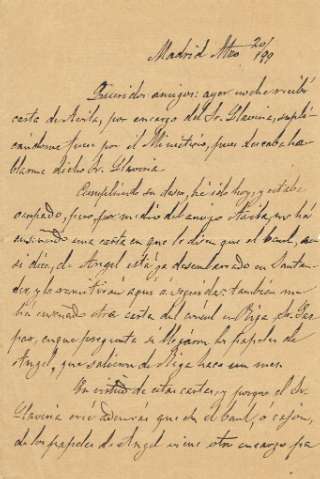 Madrid Mzo 20/99
Queridos amigos: ayer noche recibí
carta de Avila, por encargo del Sr. Llavería, suplicándome
fuera por el Ministerio, pues deseaba hablarme
dicho Sr. Llavería
Cumpliendo su deseo, he ido hoy, y estaba
ocupado, pero por medio del amigo me ha
enseñado una carta en que le dicen que el baul,
si dice, de Angel está ya desembarcado en Santander,
y lo remitirán aquí en seguida: también me
ha enseñado otra carta del cónsul en Riga Sr.
en que pregunta si llegaron los papeles de
Angel, que salieron de Riga hace un mes.
En de estas cartas, y porque el Sr.
Llavería cree además que en el baul, o cajón,
de los papeles de Angel viene otro encargo pa